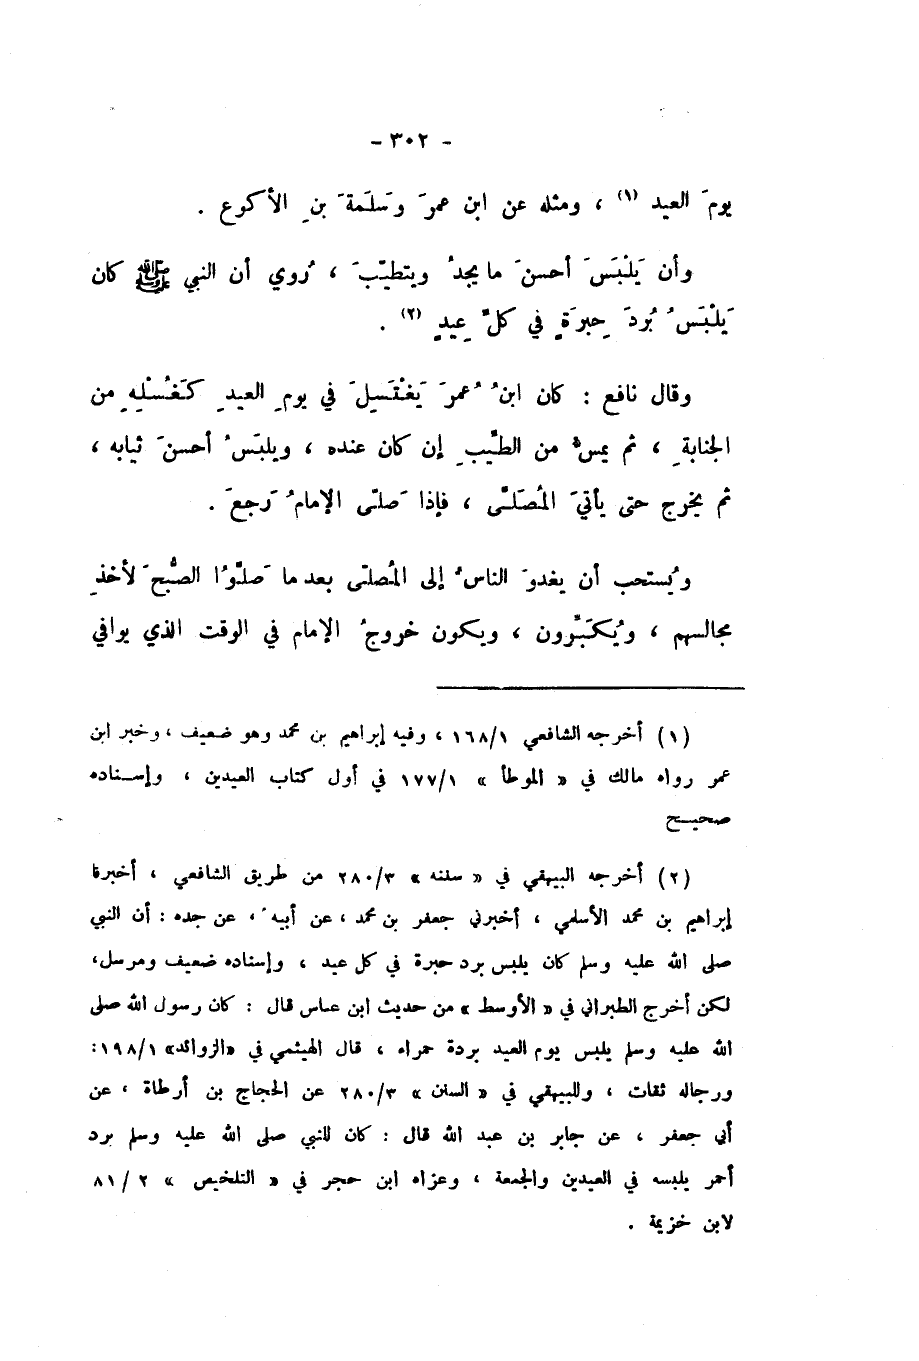 - ٣٠٢ -
يومَ العيد (١) ، ومثله عن ابن عمرَ وسَلَمةَ بنِ الأكوع .
وأن يَلْبَسَ أحسنَ ما يجدُ ويتطيّبَ ، رُوي أن النبي ﷺ كان
يَلْبَسُ بُردَ حِبرَةٍ في كلِّ عِيدٍ (٢) .
وقال نافع : كان ابنُ عُمرَ يَغْتَسِلَ في يومِ العيدِ كَغُسْلِهِ من
الجنابةِ ، ثم يمسُّ من الطّيبِ إن كان عنده ، ويلبَسُ أحسنَ ثيابه ،
ثم يخرج حتى يأتيَ المُصَلّى ، فإذا صَلّى الإمامُ رَجعَ .
ويُستحب أن يغدوَ الناسُ إلى المُصلّى بعد ما صَلَّوُا الصُّبحَ لأخذِ
مجالسهم ، ويُكَبِّرون ، ويكون خروجُ الإمام في الوقت الذي يوافي
(١) أخرجه الشافعي ١٦٨/١ ، وفيه إبراهيم بن محمد وهو ضعيف ، وخبر ابن
عمر رواه مالك في « الموطأ » ١٧٧/١ في أول كتاب العيدين ، وإسناده
صحيح
(٢) أخرجه البيهقي في « سننه » ٢٨٠/٣ من طريق الشافعي ، أخبرنا
إبراهيم بن محمد الأسلمي ، أخبرني جعفر بن محمد ، عن أبيه ، عن جده : أن النبي
صلى الله عليه وسلم كان يلبس برد حبرة في كل عيد ، وإسناده ضعيف ومرسل،
لكن أخرج الطبراني في « الأوسط » من حديث ابن عباس قال : كان رسول الله صلى
الله عليه وسلم يلبس يوم العيد بردة حمراء ، قال الهيثمي في «الزوائد» ١٩٨/١:
ورجاله ثقات ، وللبيهقي في « السنن » ٢٨٠/٣ عن الحجاج بن أرطاة ، عن
أبي جعفر ، عن جابر بن عبد الله قال : كان للنبي صلى الله عليه وسلم برد
أحمر يلبسه في العيدين والجمعة ، وعزاه ابن حجر في « التلخيص » ٢ / ٨١
لابن خزيمة .